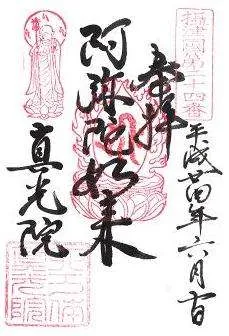 攝津國第二十四番
奉拝
平成廿四年六月吉日
阿弥陀如来
真光院